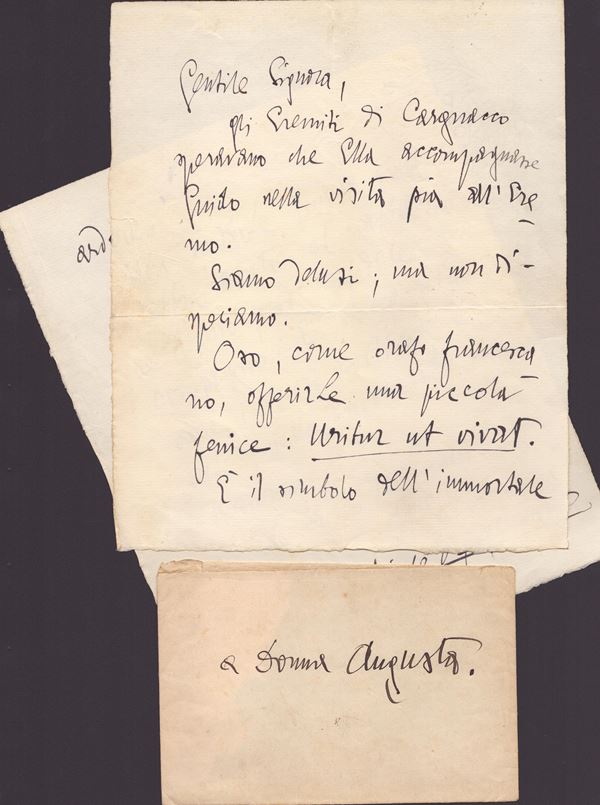 Gentile Signora,
gli Eremiti di Cargnacco
speravano che Ella accompagnasse
Guido nella visita pia all'Ere-
mo.
Siamo delusi; ma non di-
speriamo.
Oso, come orafo francesca
no, offerirLe una piccola
fenice: Uritur ut vivat.
È il simbolo dell'immortale
a Donna Augusta.